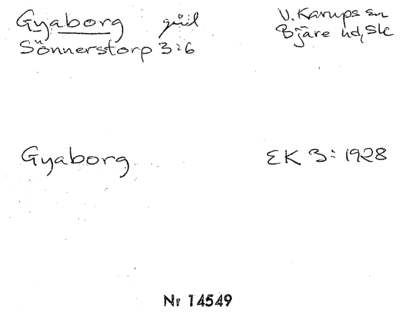 Gyaborg
V. Karups sn
Sönnerstorp 3:6
Bjäre hd, Sk
Gyaborg
EK 3:1928
Nr 14549